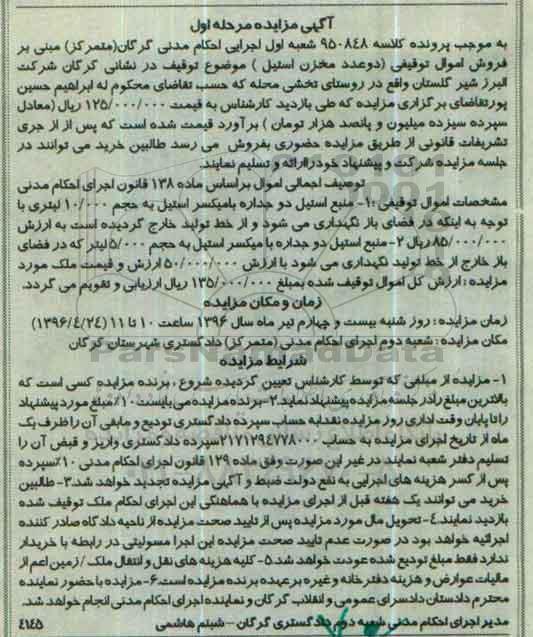 آگهی مزایده مرحله اول
به موجب پرونده کلاسه ۹۵۰۸۴۸ شعبه اول اجرایی احکام مدنی گرگان(متمرکز) مبنی بر
فروش اموال توقیفی (دوعدد مخزن استیل ) موضوع توقیف در نشانی گرگان شرکت
البرز شیر گلستان واقع در روستای تخشی محله که حسب تقاضای محکوم له ابراهیم حسین
پورتقاضای برگزاری مزایده که طی بازدید کارشناس به قیمت ۱۲۵/۰۰۰/۰۰۰ ریال (معادل
سپرده سیزده میلیون و پانصد هزار تومان ) برآورد قیمت شده است که پس از از جری
تشریفات قانونی از طریق مزایده حضوری بفروش می رسد طالبین خرید می توانند در
جلسه مزایده شرکت و پیشنهاد خودراارائه و تسلیم نمایند.
توصیف اجمالی اموال براساس ماده ۱۳۸ قانون اجرای احکام مدنی
مشخصات اموال توقیفی :۱- منبع استیل دو جداره بامیکسر استیل به حجم ۱۰/۰۰۰ لیتری با
توجه به اینکه در فضای باز نگهداری می شود و از خط تولید خارج گردیده است به ارزش
۸۵/۰۰۰/۰۰۰ ریال ۲- منبع استیل دو جداره با میکسر استیل به حجم ۵/۰۰۰ لیتر که در فضای
باز خارج از خط تولید نگهداری می شود با ارزش ۵۰/۰۰۰/۰۰۰ ارزش و قیمت ملک مورد
مزایده : ارزش کل اموال توقیف شده بمبلغ ۱۳۵/۰۰۰/۰۰۰ ریال ارزیابی و تقویم می گردد.
زمان و مکان مزایده
زمان مزایده : روز شنبه بیست و چهارم تیر ماه سال ۱۳۹۶ ساعت ۱۰ تا ۱۱ (۱۳۹۶/۴/۲۴)
مکان مزایده : شعبه دوم اجرای احکام مدنی (متمرکز) دادگستری شهرستان گرگان
شرایط مزایده
۱- مزایده از مبلغی که توسط کارشناس تعیین گردیده شروع ، برنده مزایده کسی است که
بالاترین مبلغ رادر جلسه مزایده پیشنهاد نماید.۲-برنده مزایده می بایست ۱۰٪ مبلغ مورد پیشنهاد
را تا پایان وقت اداری روز مزایده نقدا به حساب سپرده دادگستری تودیع و مابقی آن را ظرف یک
ماه از تاریخ اجرای مزایده به حساب ۲۱۷۱۲۹۴۷۷۸۰۰۰سپرده دادگستری واریز و قبض آن را
تسلیم دفتر شعبه نمایند در غیر این صورت وفق ماده ۱۲۹ قانون اجرای احکام مدنی ۱۰٪سپرده
پس از کسر هزینه های اجرایی به نفع دولت ضبط و آگهی مزایده تجدید خواهد شد.۳- طالبین
خرید می توانند یک هفته قبل از اجرای مزایده با هماهنگی این اجرای احکام ملک توقیف شده
بازدید نمایند.۴- تحویل مال مورد مزایده پس از تایید صحت مزایده از ناحیه دادگاه صادر کننده
اجرائیه خواهد بود در صورت عدم تایید صحت مزایده این اجرا مسولیتی در رابطه با خریدار
ندارد فقط مبلغ تودیع شده عودت خواهد شد.۵- کلیه هزینه های نقل و انتقال ملک / زمین اعم از
مالیات عوارض و هزینه دفتر خانه و غیره بر عهده برنده مزایده است.۶- مزایده با حضور نماینده
محترم دادستان دادسرای عمومی و انقلاب گرگان و نماینده اجرای احکام مدنی انجام خواهد شد.
مدیر اجرای احکام مدنی شعبه دوم دادگستری گرگان – شبنم هاشمی ۴۱۴۵
ParsNamadData